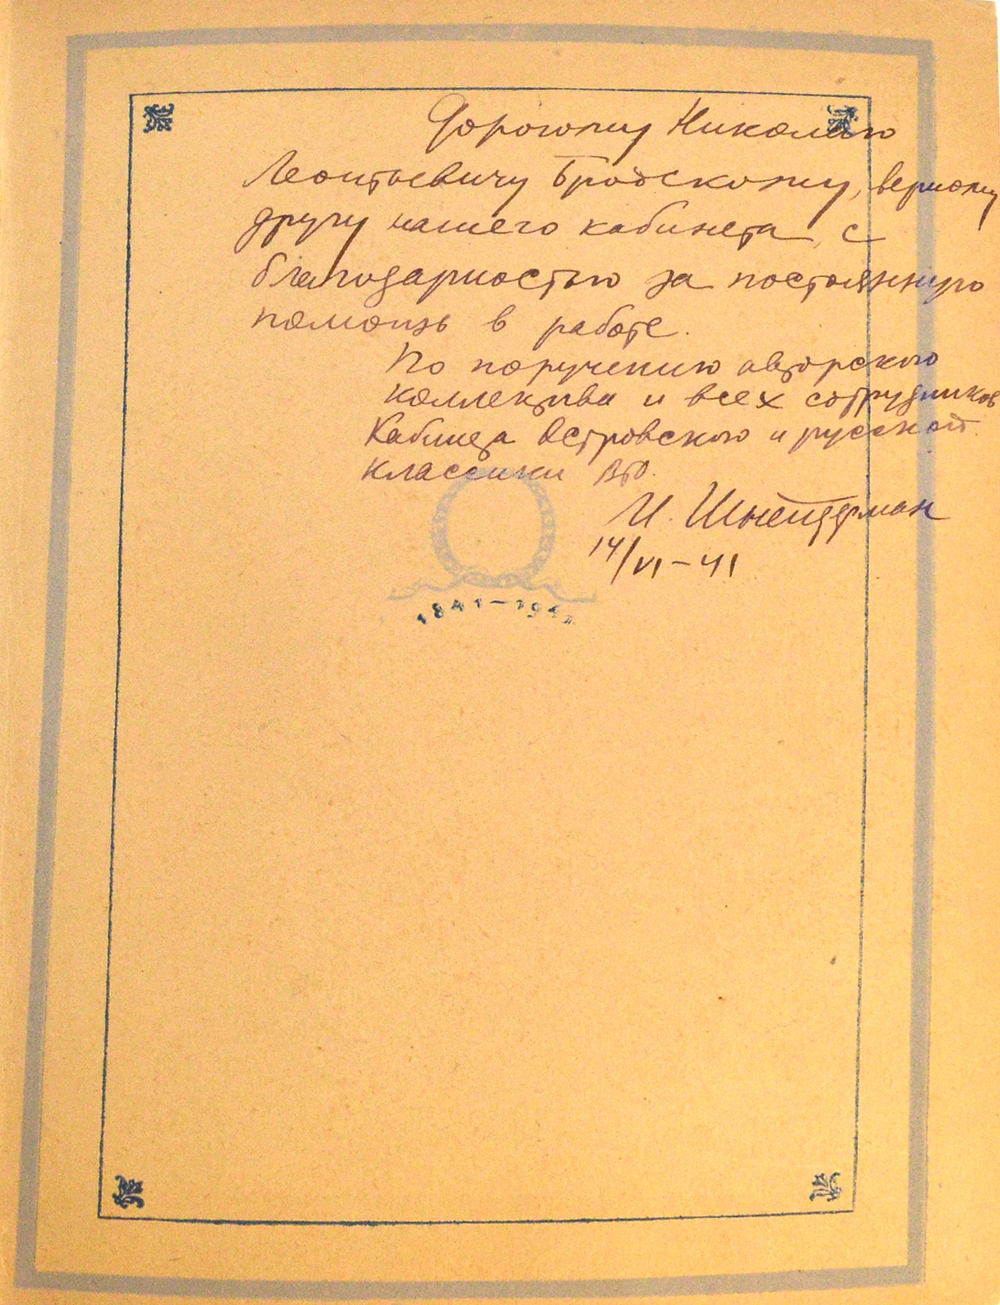 Дорогому Николаю
Леонтьевичу Бродскому, верному
другу нашего кабинета, с
благодарностью за постоянную
помощь в работе.
По поручению авторского
коллектива и всех сотрудников
Кабинета Островского и русской
классики ВТО.
И. Шнейдерман
14/VI-41
1841-1941